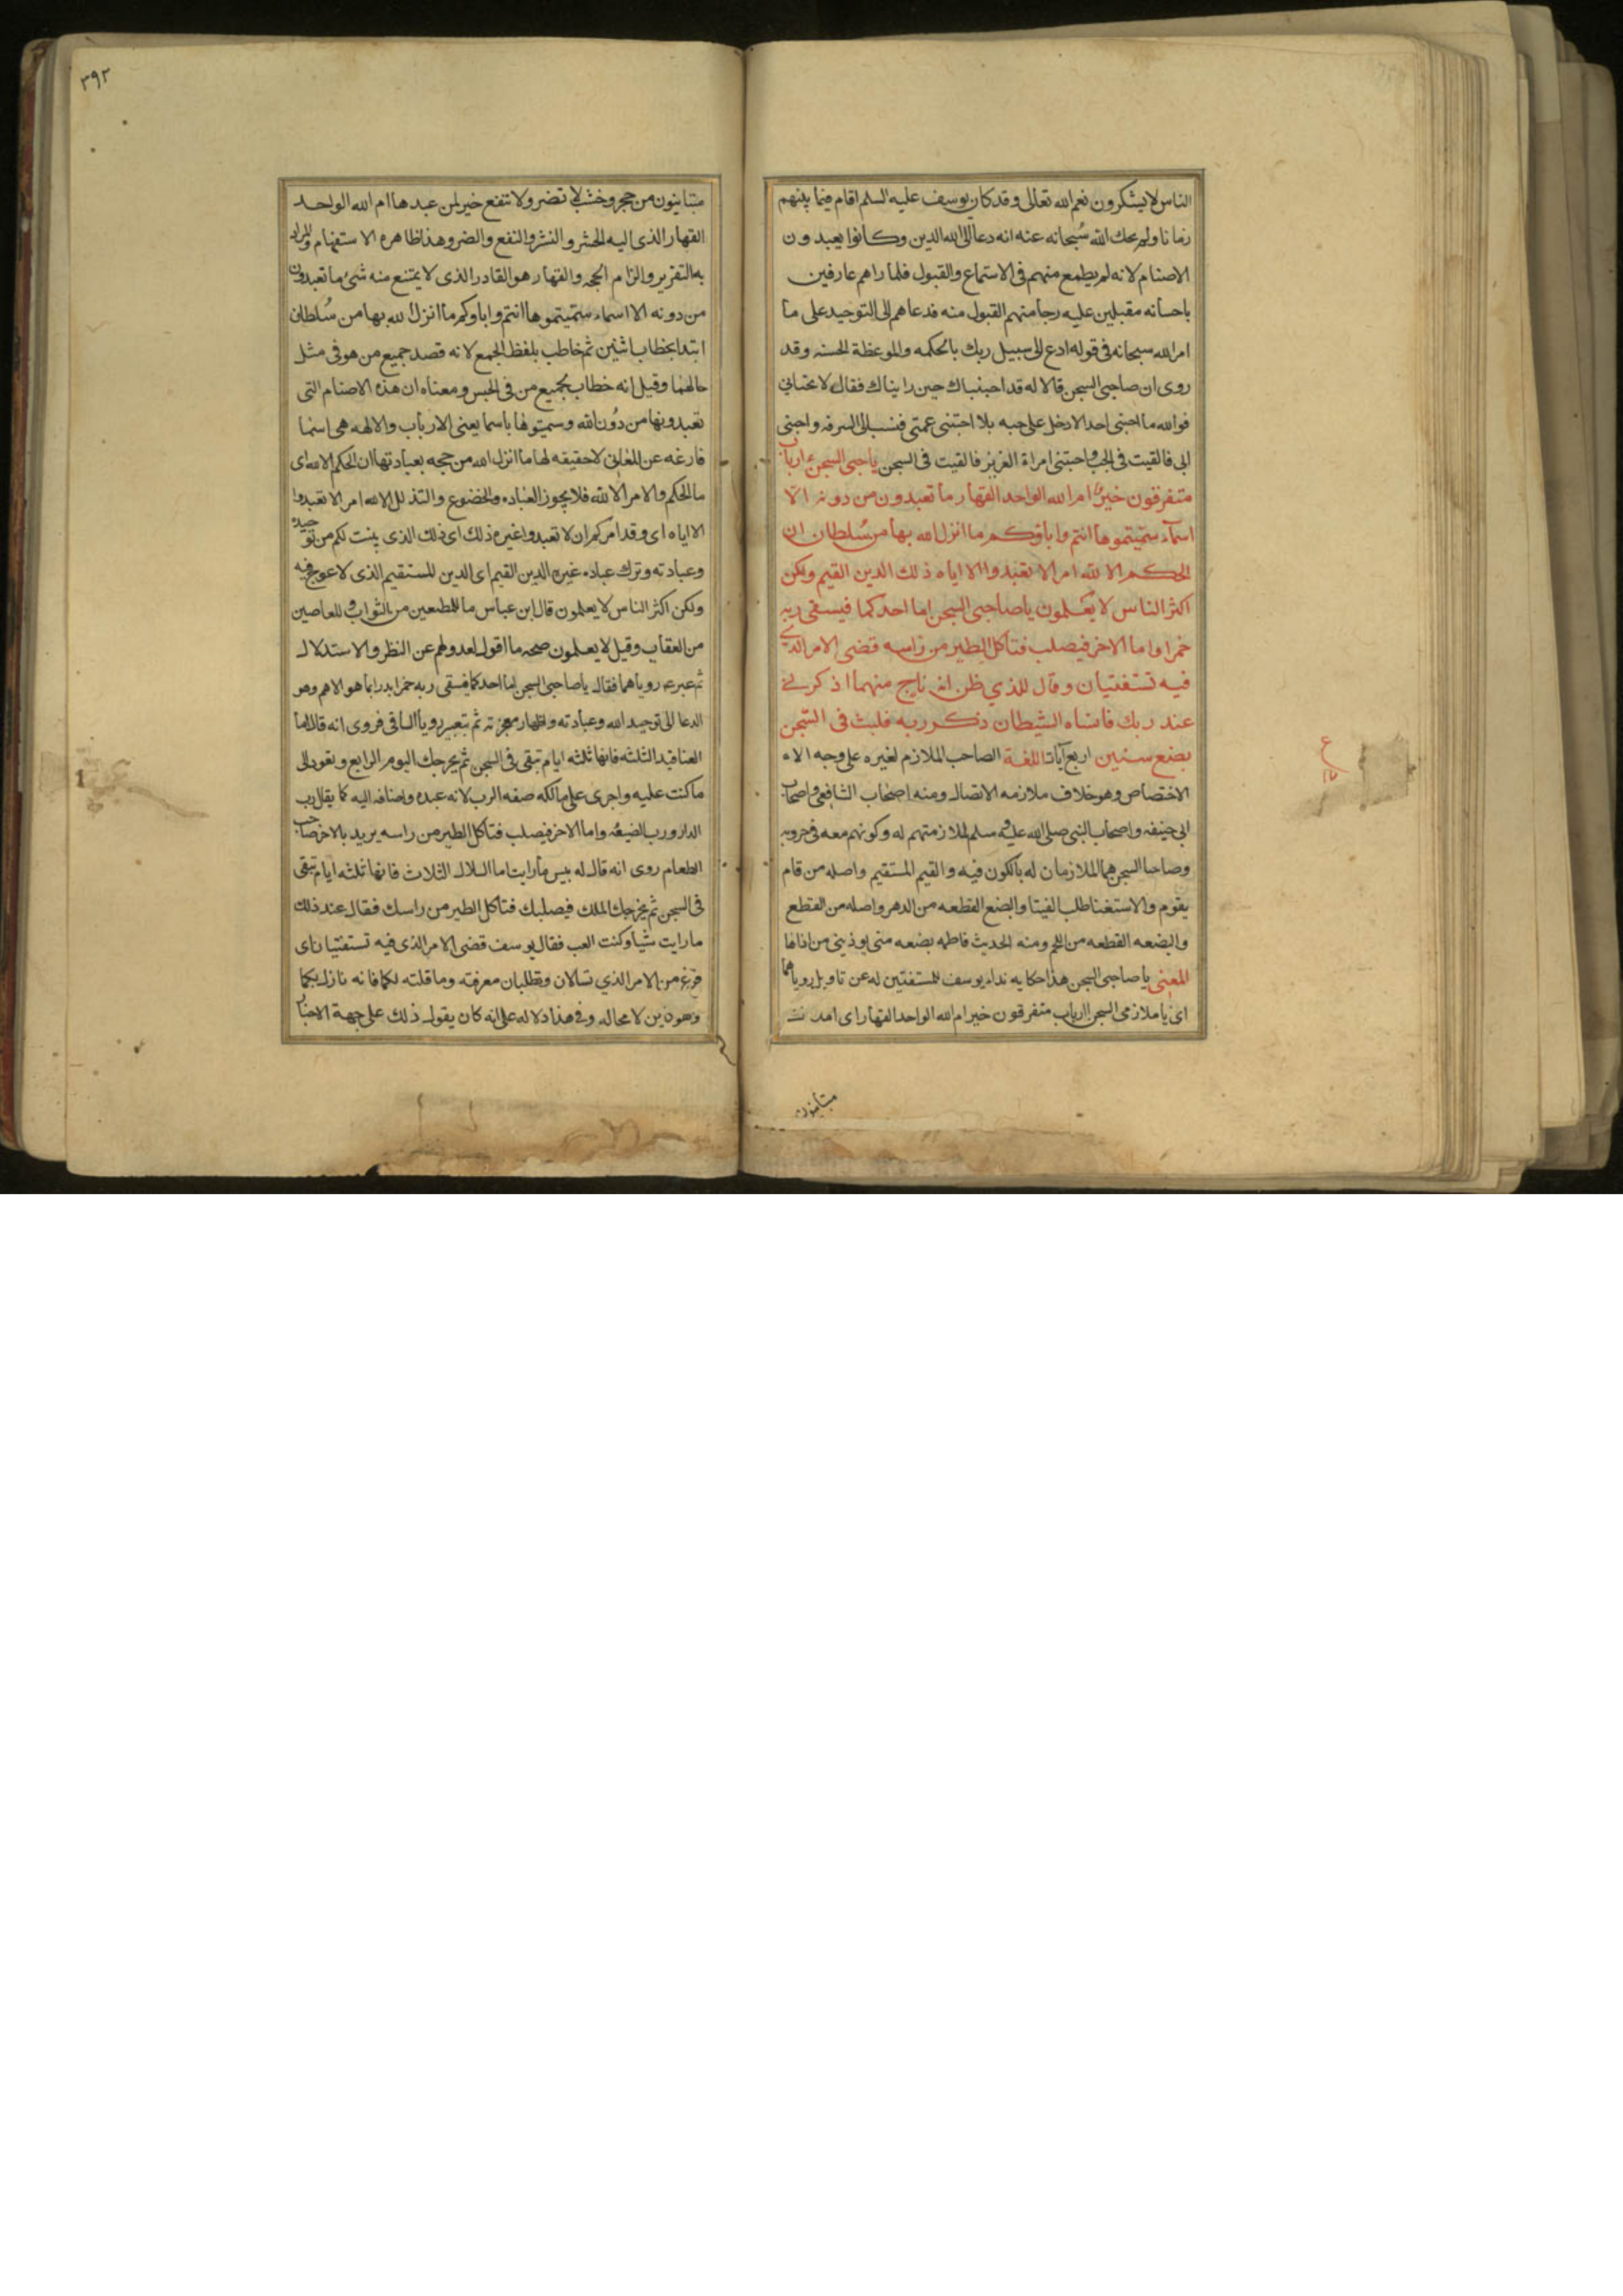 الناس لا يشكرون نعم الله تعالى وقد كان يوسف عليه السلم اقام فيما بينهم
زمانا ولم يحك الله سُبحانه عنه انه دعا الى الله الدين وكانوا يعبدون
الاصنام لانه لم يطمع منهم فى الاستماع والقبول فلما راهم عارفين
باحسانه مقبلين عليه رجا منهم القبول منه فدعاهم الى التوحيد على ما
امر الله سبحانه فى قوله ادع الى سبيل ربك بالحكمه والموعظة الحسنه وقد
روى ان صاحبى السجن قالا له قد احببناك حين رايناك فقال لا تحبانى
فوالله ما احبنى احد الا دخل على حبه بلا احبتنى عمتى فنسب الى السرقه واحبنى
ابى فالقيت فى الجب واحبتنى امراة العزيز فالقيت فى السجن يا صاحبى السجن ءارباب
متفرقون خيرٌ ام الله الواحد القهار ما تعبدون من دونه الّا
اسمآء سمّيتموها انتم واباؤكم ما انزل الله بها من سُلطان ان
الحكم الا لله امر الا تعبدوا الا اياه ذلك الدين القيم ولكن
اكثر الناس لا يَعْلمون يا صاحبى السجن اما احدكما فيسقى ربه
خمرا واما الاخر فيصلب فتاكل الطير من راسه قضى الامر الذي
فيه تستفتيان وقال للذي ظن انه ناج منهما اذكرنى
عند ربك فانساه الشيطان ذكر ربه فلبث فى السّجن
بضع سنين اربع آيات اللغة الصاحب الملازم لغيره على وجه الاء
الاختصاص وهو خلاف ملازمه الاتصال ومنه اصحاب الشافعى واصحاب
ابى حنيفه واصحاب النبى صلى الله عليه وسلم لملازمتهم له وكونهم معه فى حروبه
وصاحبا السجن هما الملازمان له بالكون فيه والقيم المستقيم واصله من قام
يقوم والاستفتا طلب الفتيا والبضع القطعه من الدهر واصله من القطع
والبضعه القطعه من اللحم ومنه الحديث فاطمه بضعه منى يوذينى من اذاها
المعنى يا صاحبى السجن هذا حكايه نداء يوسف للمستفتين له عن تاويل روياهما
اى يا ملازمى السجن اارباب متفرقون خير ام الله الواحد القهار اى
متباينون
٣٩٢
متباينون من حجر وخشب لا تضر ولا تنفع خير لمن عبدها ام الله الواحد
القهار الذى اليه الحشر والنشر والنفع والضر وهذا ظاهره الاستفهام والمراد
به التقرير والزام الحجه والقهار هو القادر الذى لا يمتنع منه شئ ما تعبدون
من دونه الا اسماء سمّيتموها انتم واباوكم ما انزل الله بها من سُلطان
ابتدا بخطاب اثنين ثم خاطب بلفظ الجمع لانه قصد جميع من هو فى مثل
حالهما وقيل انه خطاب لجميع من فى الحبس ومعناه ان هذه الاصنام التى
تعبدونها من دُون الله وسميتوها باسما يعنى الارباب والالهه هى اسما
فارغه عن المعانى لا حقيقه لها ما انزل الله من حجه بعبادتها ان الحكم الا لله اى
ما الحكم والامر الا لله فلا يجوز العباده والخضوع والتذلل الا لله امر الا تعبدوا
الا اياه اى وقد امركم ان لا تعبدوا غيره ذلك اى ذلك الذى بينت لكم من توحيده
وعبادته وترك عباده غيره الدين القيم اى الدين المستقيم الذى لا عوج فيه
ولكن اكثر الناس لا يعلمون قال ابن عباس ما للمطيعين من الثواب وللعاصين
من العقاب وقيل لا يعلمون صحه ما اقول لعدولهم عن النظر والاستدلال
ثم عبر ع روياهما فقال يا صاحبى السجن اما احدكما فيسقى ربه خمرا بدا بما هو الاهم وهو
الدعا الى توحيد الله وعبادته واظهار معجزته ثم بتعبير رويا الساقى فروى انه قال اما
العناقيد الثلثه فانها ثلثه ايام تبقى فى السجن ثم يخرجك اليوم الرابع وتعود الى
ما كنت عليه واجرى على مالكه صفه الرب لانه عبده واضافه اليه كما يقال رب
الدار ورب الضيعه واما الاخر فيصلب فتاكل الطير من راسه يريد بالاخر صاحب
الطعام روى انه قال له بيس ما رايت اما السلال الثلاث فانها ثلثه ايام تبقى
فى السجن ثم يخرجك الملك فيصلبك فتاكل الطير من راسك فقال عند ذلك
ما رايت شيا وكنت العب فقال يوسف قضى الامر الذى فيه تستفتيان اى
فرغ من الامر الذي تسالان وتطلبان معرفته وما قلته لكما فانه نازل بكما
وهو كاين لا محاله وفى هذا دلاله على انه كان يقول ذلك على جهة الاخبار